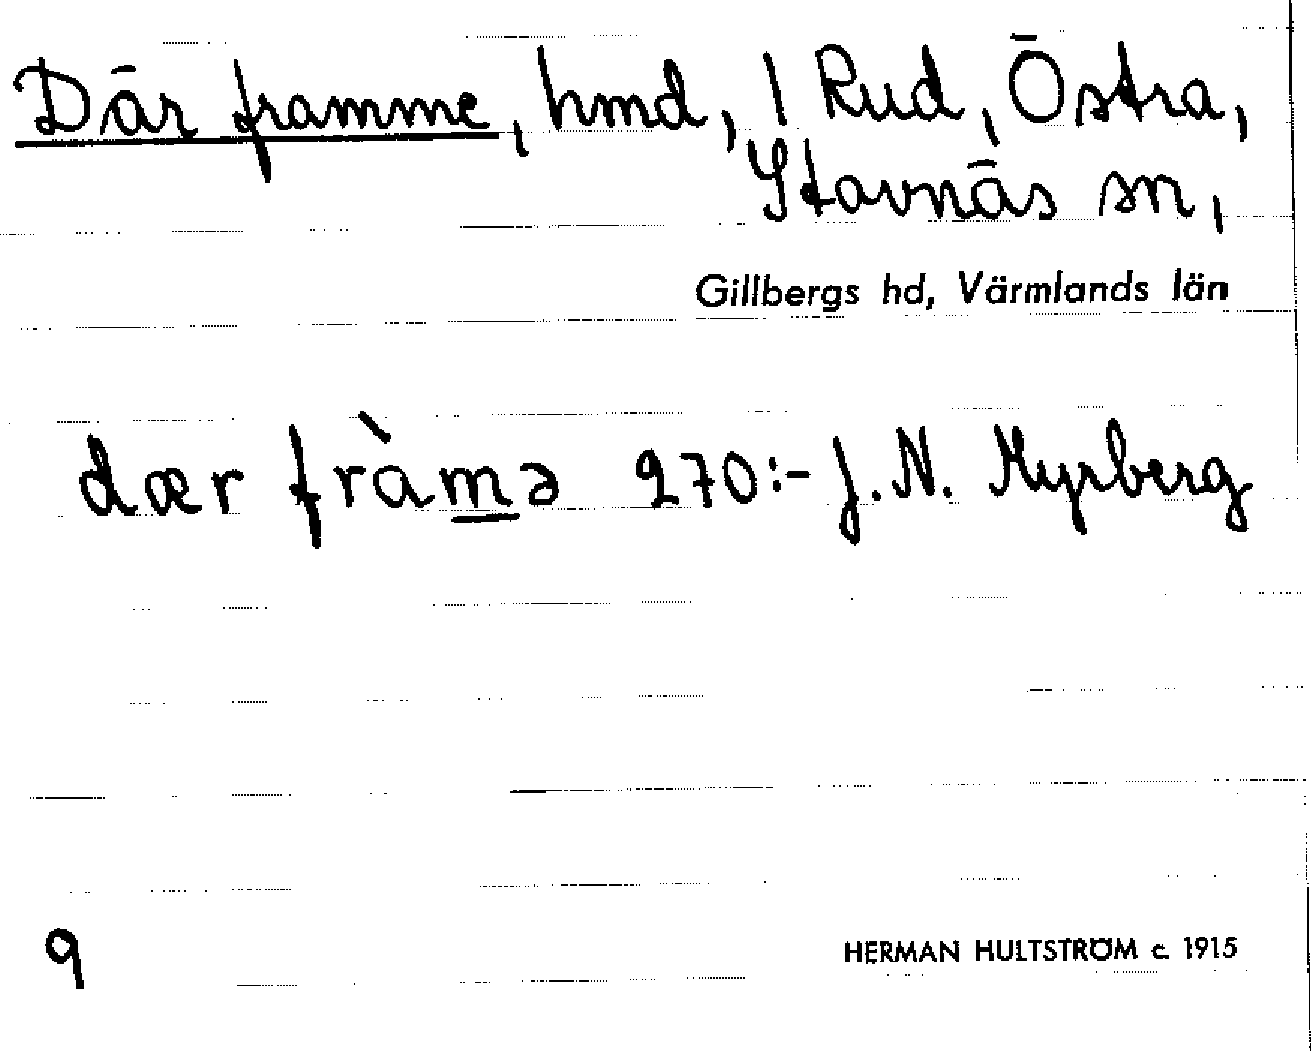 Där framme, hmd, 1 Rud, Östra,
Stavnäs sn,
Gillbergs hd, Värmlands län
dær fràmə 270:- J. N. Myrberg
9
HERMAN HULTSTRÖM c. 1915